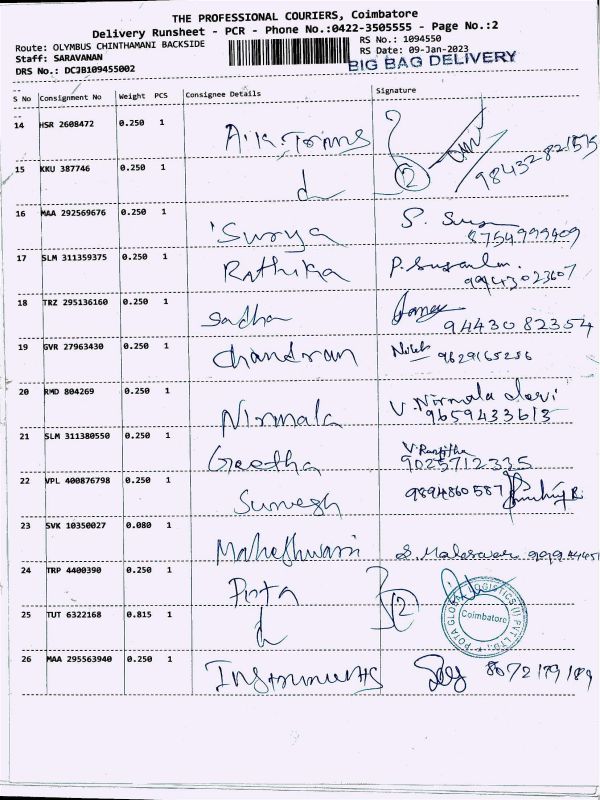 THE PROFESSIONAL COURIERS, Coimbatore
Delivery Runsheet - PCR - Phone No.:0422-3505555 - Page No.:2
Route: OLYMBUS CHINTHAMANI BACKSIDE
RS No.: 1094550
Staff: SARAVANAN
RS Date: 09-Jan-2023
DRS No.: DC2B109455002
BIG BAG DELIVERY
S No Consignment No Weight PCS Consignee Details Signature
14 HSR 2608472 0.250 1 A.K. Trims
15 KKU 387746 0.250 1 d 2 98432821515
16 MAA 292569676 0.250 1 Surya S. 8754999409
17 SLM 311359375 0.250 1 Rathika P. 9944302 3607
18 TRZ 295136160 0.250 1 Sadha 9443082354
19 GVR 27963430 0.250 1 Chandran 9629165256
20 RMD 804269 0.250 1 Nirmala V. Nirmala devi 9659433613
21 SLM 311380550 0.250 1 Geetha V. Ranjitha 9025712335
22 VPL 400876798 0.250 1 9894860587
23 SVK 10350027 0.080 1 Maheshwari
24 TRP 4400390 0.250 1 Pota
25 TUT 6322168 0.815 1 d 2
POTA GLOBAL LOGISTICS(I) PVT LTD. Coimbatore
26 MAA 295563940 0.250 1 Instruments 8072179189